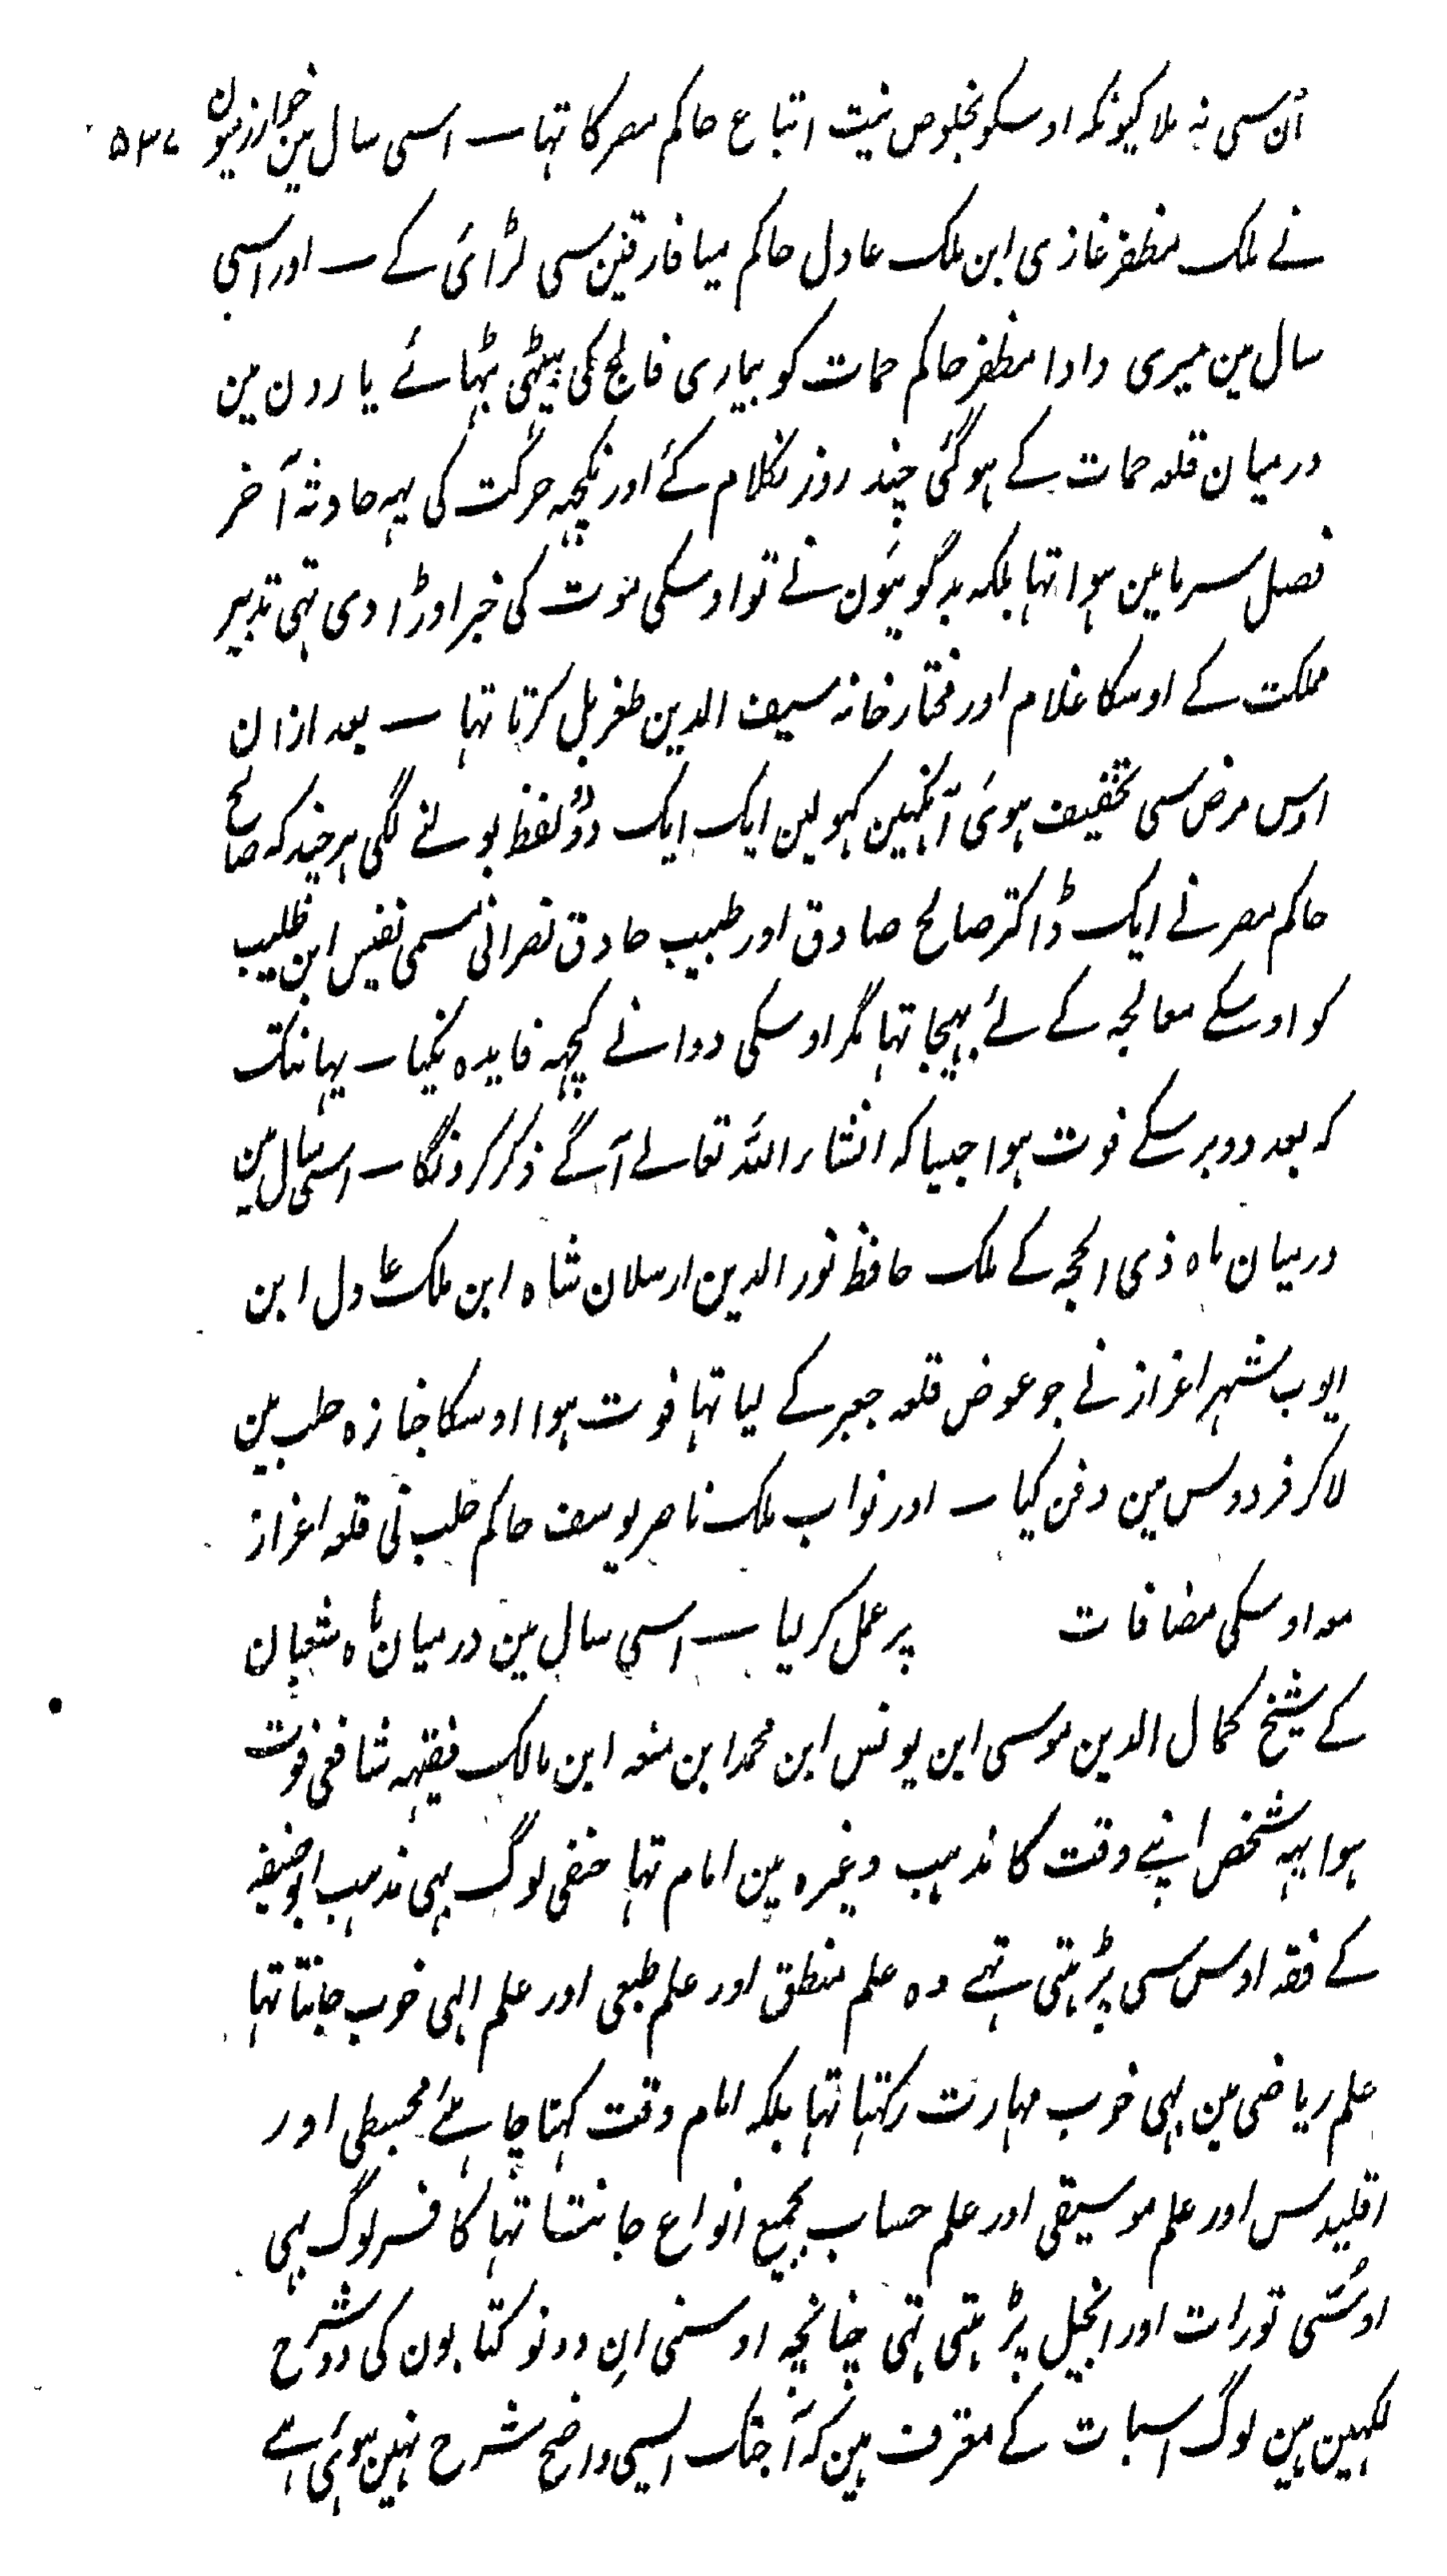 اُن سی نہ ملا کیونکہ اوسکو بخلوص نیت اتباع حاکم مصر کا تہا ـ اسی سال مین خوارزمیون ۵۳۷
نے ملک مظفر غازی ابن ملک عادل حاکم میافارقین سی لڑائی کے ـ اور اسی
سال مین میری دادا مظفر حاکم حمات کو بیماری فالج کی بیٹھی بٹہائے یارون مین
درمیان قلعہ حمات کے ہوگئی چند روز نکلام کے اور نکچہہ حرکت کی یہہ حادثہ آخر
فصل سرما مین ہوا تہا بلکہ بدگویَون نے تو اوسکی موت کی خبر اوڑا دی تہی تدبیر
مملکت کے اوسکا غلام اور مختار خانہ سیف الدین طغربل کرتا تہا ـ بعد ازان
اوس مرض سی تخفیف ہوئی آنکہین کہولین ایک ایک دوُلفظ بولنے لگی ہرچند کہ صالح
حاکم مصر نے ایک ڈاکتر صالح صادق اور طبیب حادق نصرانی مسمی نفیس ابن طلیب
کو اوسکے معالجہ کے لئے بہیجا تہا مگر اوسکی دوا نے کچہہ فایدہ نکیا ـ یہانتک
کہ بعد دو برسکے فوت ہوا جیسا کہ انشاء اللہ تعالے آگے ذکر کرونگا ـ اسی سال مین
درمیان ماہ ذی الحجہ کے ملک حافظ نور الدین ارسلان شاہ ابن ملک عادل ابن
ایوب شہر اعزاز نے جو عوض قلعہ جعبر کے لیا تہا فوت ہوا اوسکا جنازہ حلب مین
لاکر فردوس مین دفن کیا ـ اور نواب ملک ناصر یوسف حاکم حلب نی قلعہ اعزاز
معہ اوسکی مضافات پر عمل کر لیا ـ اسی سال مین درمیان ماہ شعبان
کے شیخ کمال الدین موسی ابن یونس ابن محمد ابن منعہ ابن مالک فقیہہ شافعی فوت
ہوا یہہ شخص اپنے وقت کا مذہب وغیرہ مین امام تہا حنفی لوگ بہی مذہب ابو حنیفہ
کے فقہ اوس سی پڑہتی تہے وہ علم منطق اور علم طبعی اور علم الہی خوب جانتا تہا
علم ریاضی مین بہی خوب مہارت رکہتا تہا بلکہ امام وقت کہنا چاہئے مجسطی اور
اقلیدس اور علم موسیقی اور علم حساب بجمیع انواع جانتا تہا کافر لوگ بہی
اوسُسی تورات اور انجیل پڑہتی تہی چنانچہ اوسنی اِن دونو کتابون کی دو شرح
لکہین ہین لوگ اسبات کے معترف ہین کہ آجتک ایسی واضح شرح نہین ہوئی ہے